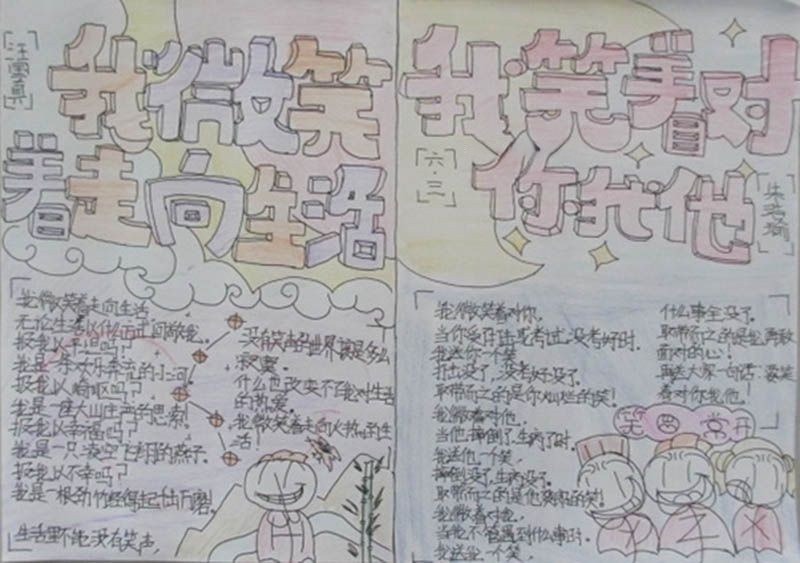 我微笑
着走向生活
我微笑着走向生活
无论生活以什么方式回敬我。
报我以平坦吗?
我是一条欢乐奔流的小河
报我以崎岖吗?
我是一座大山庄严的思索!
报我以幸福吗?
我是一只凌空飞翔的燕子.
报我以不幸吗?
我是一根劲竹经得起千击万磨!
生活里不能没有笑声,
没有笑声的世界该是多么
寂寞。
什么也改变不了我对生活
的热爱。
我微笑着走向火热的生
活!
我笑着对
你我他
六·三
我微笑着对你.
当你受打击或考试,没考好时.
我送你一个笑.
打击没了,没考好没了.
取带而之的是你灿烂的笑!
我微着对他.
当他摔倒了生病了时.
我送他一个笑.
摔倒没了,生病没了.
取带而之的是他爽朗的笑!
我微着对她.
当她不管遇到什么事时.
我送她一个笑.
什么事全没了.
取带而之的是我勇敢
面对的心!
再送大家一句话:要笑
着对你我他!
笑口常开